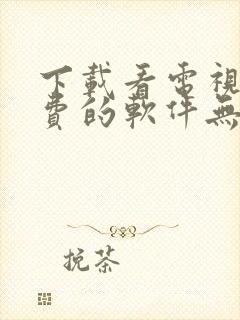 下載看電視
費的軟件無
挽茶